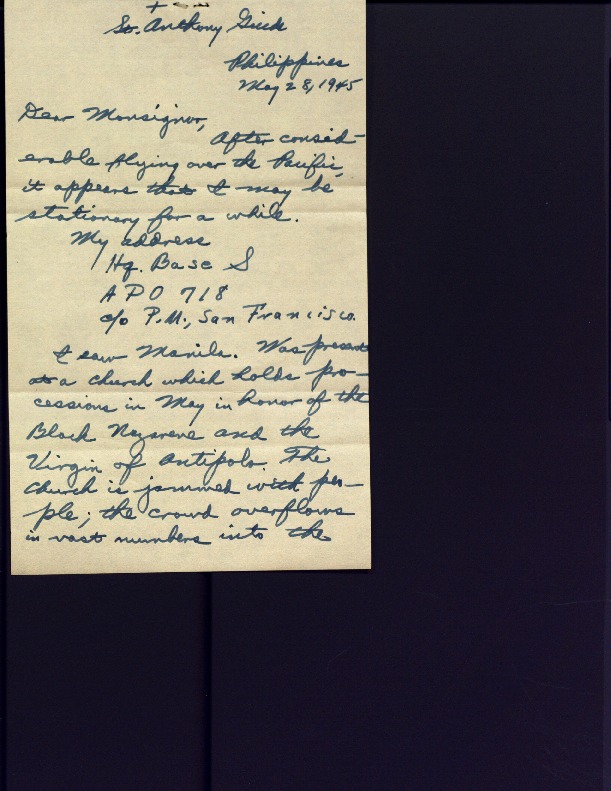 +
St. Anthony Guide
Philippines
May 28, 1945
Dear Monsignor,
After consid-
erable flying over the Pacific,
it appears that I may be
stationary for a while.
My address
Hq. Base S
APO 718
c/o P.M., San Francisco.
I saw Manila. Was present
at a church which holds pro-
cessions in May in honor of the
Black Nazarene and the
Virgin of Antipolo. The
church is jammed with peo-
ple; the crowd overflows
in vast numbers into the